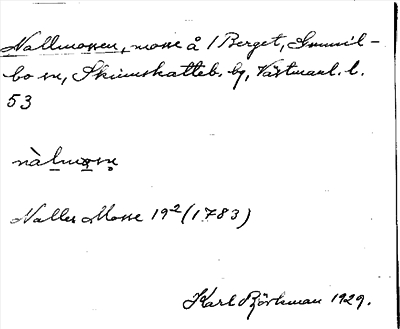 Nallmossen, mosse å 1 Berget, Gunnil-
bo sn, Skinnskatteb. bg, Västmanl. l.
53
nàlmosn
Nalles Mosse 19² (1783)
Karl Björkman 1929.